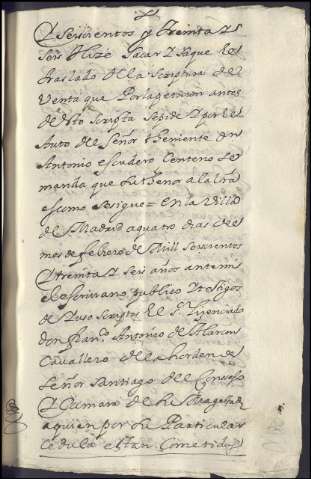 Seiscientos y treinta y
seis hize sacar y saque Un
traslado de la scriptura de
Venta que Por la peticion antes
de esto scripta se pide y por el
Auto del Señor theniente Don
Antonio escudero Centeno se
manda que su thenor a la letra
es como se sigue = En la Villa
de Madrid a quatro dias del
mes de febrero de Mill Seiscientos
y treinta y seis años ante mi
el escrivano publico y testigos
de yuso scriptos El Sr. Licenciado
don Franco. Antonio de Alarcon
Cavallero de la horden de
Señor Santiago del Consejo
y Camara de su Magestad
a quien por su Particular
cedula estan Cometidos